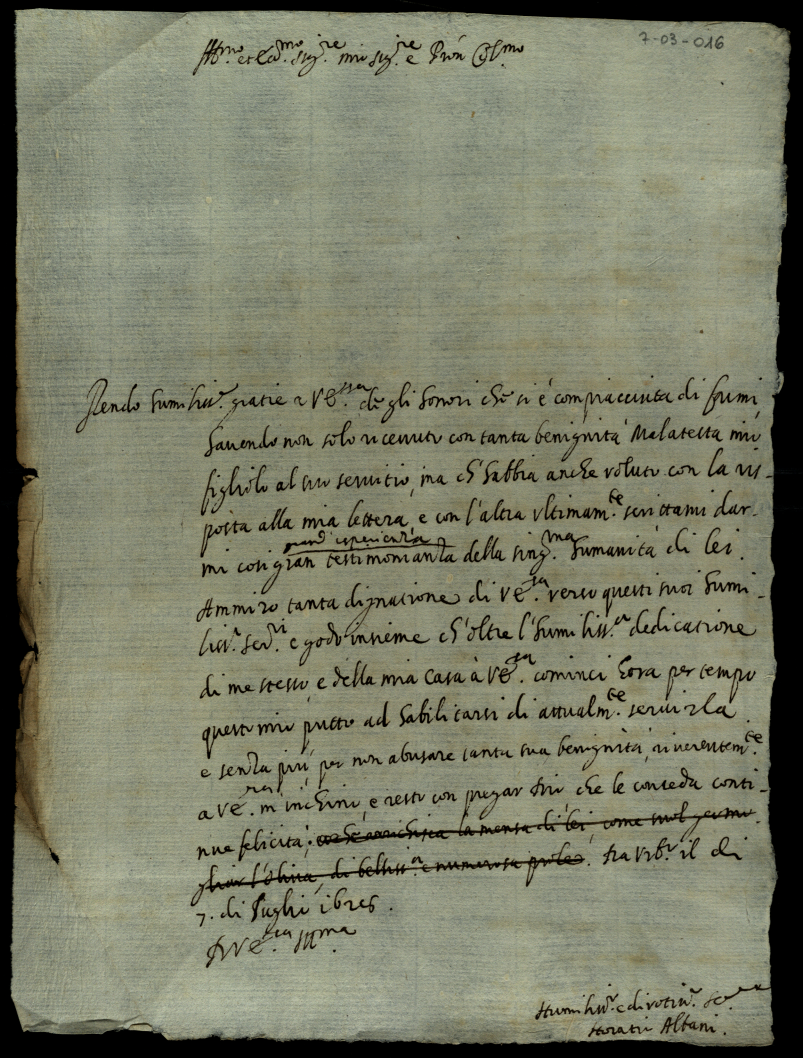 7-03-016
Ill.mo et Ecc.mo Sig.re mio Sig.re e Pron Col.mo
Rendo humiliss.e gratie a V E.ssa de gli honori che si è compiacciuta di farmi
havendo non solo ricevuto con tanta benignità Malatesta mio
figliolo al suo servitio, ma ch'habbia anche voluto con la ris-
posta alla mia lettera, e con l'altra ultimam.te scrittami dar-
mi cosi gran testimonianza della sing.ma humanità di lei.
grand'esperienza
Ammiro tanta dignatione di V E.za verso questi suoi humi-
liss.i ser.ri e godo insieme ch'oltre l'humiliss.a dedicatione
di me stesso, e della mia Casa à V E.za cominci hora per tempo
questo mio putto ad habilitarsi di attualm.te servirla
e senza più per non abusare tanta sua benignità, riverentem.te
a V E.za m'inchino, e resto con pregar Dio che le conceda conti-
nue felicità, la mensa di lei, come suol germo
gliar l'oliva, di belliss.a e numerosa prole. Da Urb.o il di
7. di Luglio
Di V E.za Ill.ma
Humiliss.o e divotiss.o Se.re
Horatio Albani.